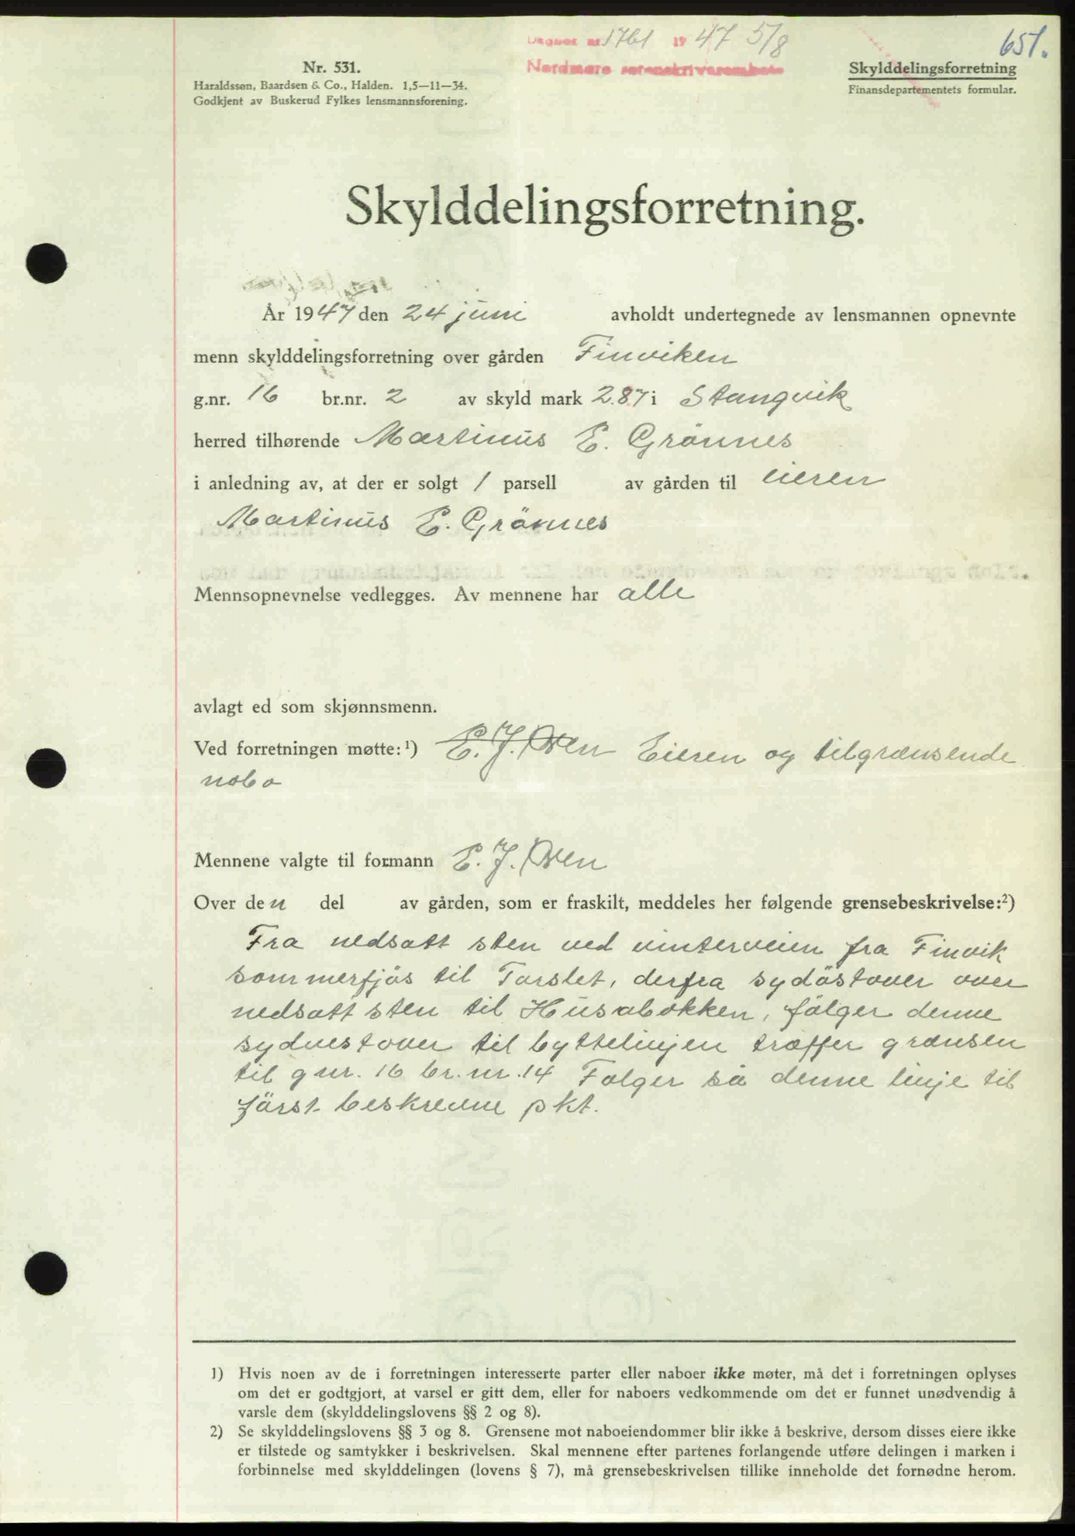 Dagbok nr. 1761 1947 5/8
Nordmøre sorenskriverembete
651.
Nr. 531.
Haraldssøn, Baardsen & Co., Halden. 1,5—11—34.
Godkjent av Buskerud Fylkes lensmannsforening.
Skylddelingsforretning
Finansdepartementets formular.
Skylddelingsforretning.
År 1947 den 24 juni avholdt undertegnede av lensmannen opnevnte
menn skylddelingsforretning over gården Finviken
g.nr. 16 br.nr. 2 av skyld mark 2.87 i Stangvik
herred tilhørende Martinus E. Grönnes
i anledning av, at der er solgt 1 parsell av gården til eieren
Martinus E. Grönnes
Mennsopnevnelse vedlegges. Av mennene har alle
avlagt ed som skjønnsmenn.
Ved forretningen møtte:¹) E. J. Øien Eieren og tilgrænsende
nabo
Mennene valgte til formann E. J. Øien
Over den del av gården, som er fraskilt, meddeles her følgende grensebeskrivelse:²)
Fra nedsatt sten ved vinterveien fra Finvik
sommerfjös til Torslet, derfra sydöstover over
nedsatt sten til Husabekken, fölger denne
sydvestover til byttelinjen træffer grænsen
til gnr. 16 br.nr. 14 Fölger så denne linje til
först beskrevne pkt.
1) Hvis noen av de i forretningen interesserte parter eller naboer ikke møter, må det i forretningen oplyses
om det er godtgjort, at varsel er gitt dem, eller for naboers vedkommende om det er funnet unødvendig å
varsle dem (skylddelingslovens §§ 2 og 8).
2) Se skylddelingslovens §§ 3 og 8. Grensene mot naboeiendommer blir ikke å beskrive, dersom disses eiere ikke
er tilstede og samtykker i beskrivelsen. Skal mennene efter partenes forlangende utføre delingen i marken i
forbinnelse med skylddelingen (lovens § 7), må grensebeskrivelsen tillike inneholde det fornødne herom.